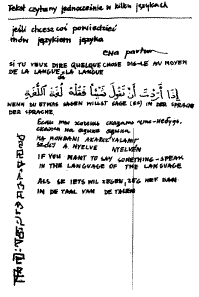 Tekst czytany jednocześnie w kilku językach
jeśli chcesz coś powiedzieć
mów językiem języka
ewa partum
SI TU VEUX DIRE QUELQUE CHOSE DIS-LE AU MOYEN
DE LA LANGUE DE LA LANGUE
إِذَا أَرَدْتَ أَنْ تَقُولَ شَيْئًا فَقُلْهُ لُغَةَ اللُّغَةِ
WENN DU ETWAS SAGEN WILLST SAGE (ES) IN DER SPRACHE
DER SPRACHE
Если ты хочешь сказать что-нибудь,
скажи на языке языка
HA MONDANI AKARSZ VALAMIT
NYELVE NYELVÉN
IF YOU WANT TO SAY SOMETHING - SPEAK
IN THE LANGUAGE OF THE LANGUAGE
ALS JE IETS WIL ZEGEN, ZEG HET DAN
IN DE TAAL VAN DE TALEN